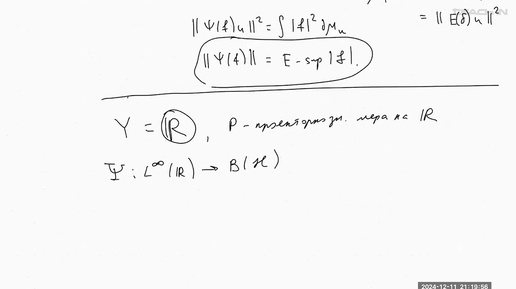 ‖Ψ(f)u‖² = ∫ |f|² dμᵤ
= ‖E(δ)u‖²
‖Ψ(f)‖ = E-sup|f|.
Y = ℝ, P - проекторнозн. мера на ℝ
Ψ : L^∞(ℝ) → B(ℋ)
2024-12-11 21:19:56